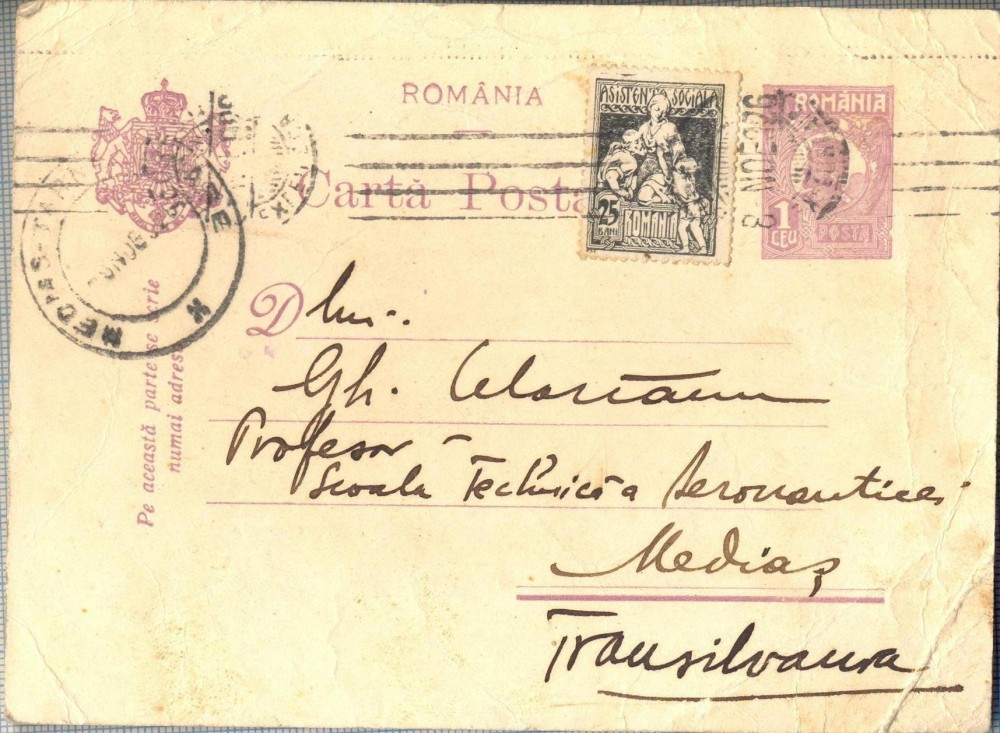 ROMÂNIA
Cartă Posta
ASISTENȚA SOCIALA
25
BANI
ROMANIA
ROMÂNIA
1
CEU
POSTA
8 NOE 926
MEDIAȘ
Pe această parte se scrie
numai adres
Dlui.
Gh.
Profesor
Scoala Technică a Aeronauticei
Mediaș
Transilvania